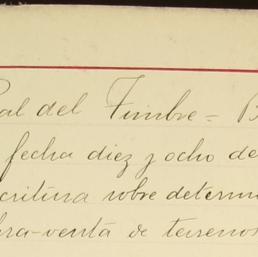 al del Timbre = B
fecha diez y ocho de
critura sobre determi
ra-venta de terrenos